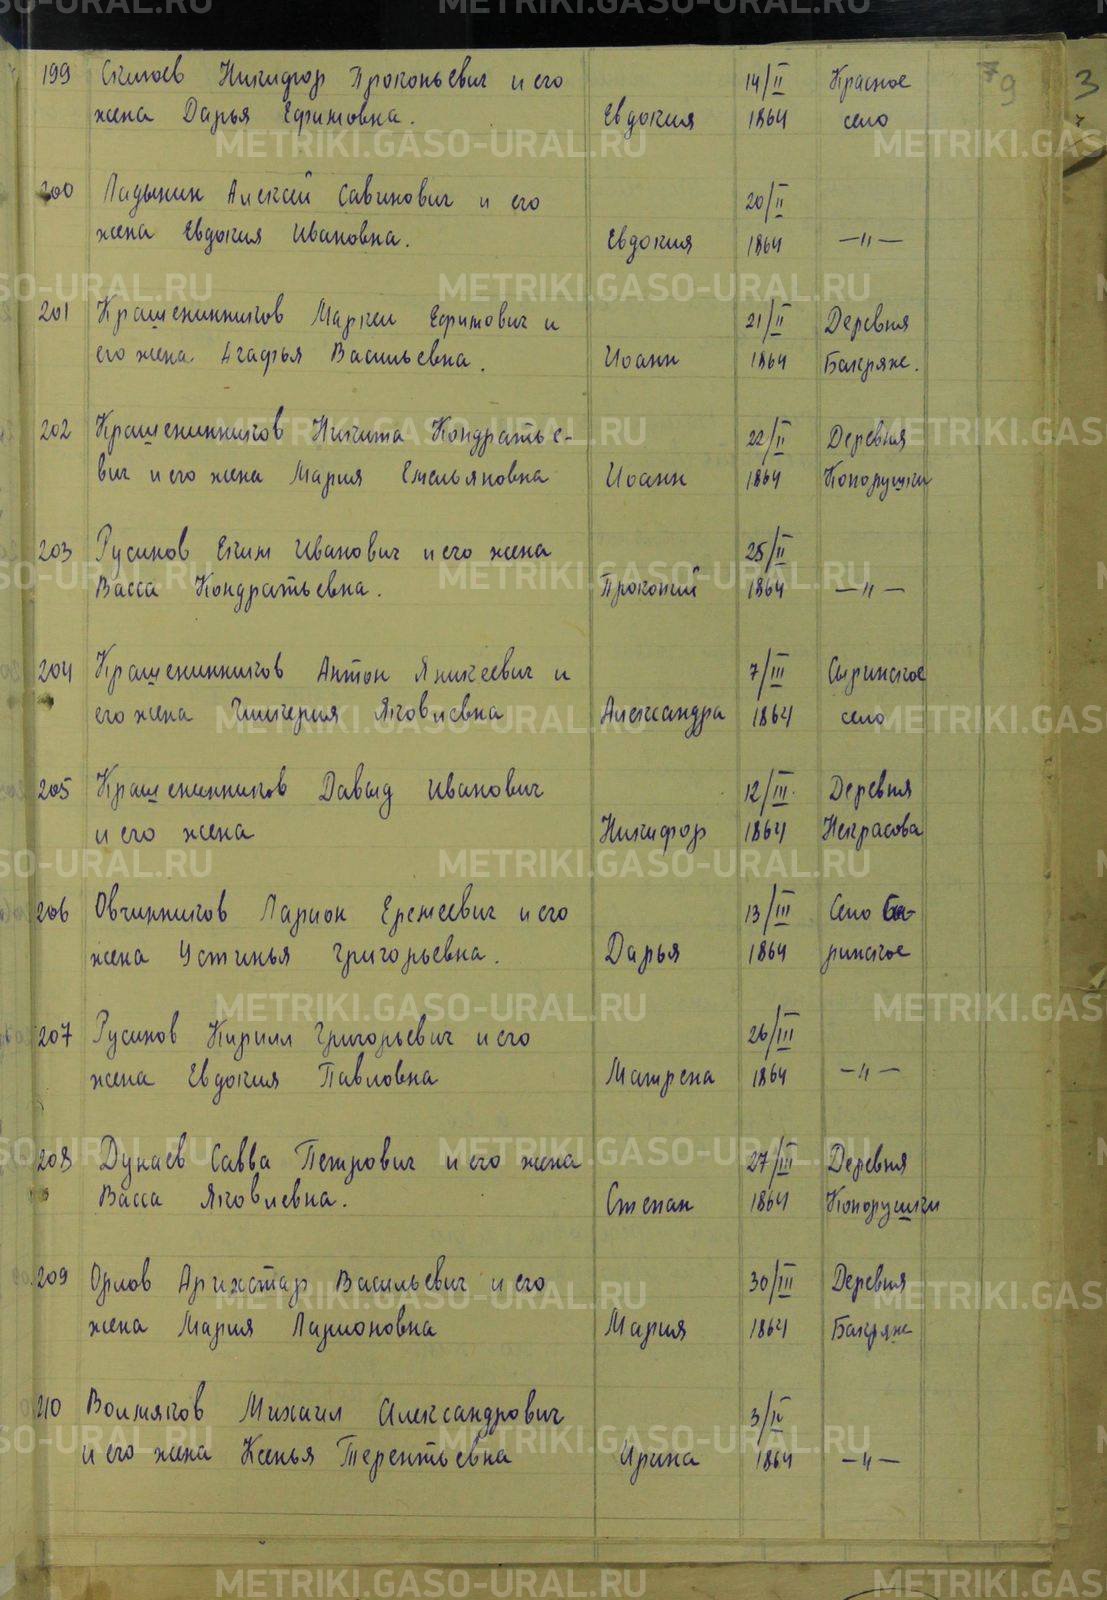 79
3
199 Скитоев Никифор Прокопьевич и его 14/II Красное
жена Дарья Ефимовна. Евдокия 1864 село
200 Ладынин Алексей Савинович и его 20/II
жена Евдокия Ивановна. Евдокия 1864 —"—
201 Крашенинников Маркел Ефимович и 21/II Деревня
его жена Агафья Васильевна. Иоанн 1864 Бакряж.
202 Крашенинников Никита Кондратье- 22/II Деревня
вич и его жена Мария Емельяновна Иоанн 1864 Конорушки
203 Русинов Еким Иванович и его жена 25/II
Васса Кондратьевна. Прокопий 1864 —"—
204 Крашенинников Антон Аникеевич и 7/III Сыринское
его жена Гликерия Яковлевна Александра 1864 село
205 Крашенинников Давыд Иванович 12/III Деревня
и его жена Никифор 1864 Некрасова
206 Овчинников Ларион Еремеевич и его 13/III Село
жена Устинья Григорьевна. Дарья 1864 ринское
207 Русинов Кирилл Григорьевич и его 26/III
жена Евдокия Павловна Матрена 1864 —"—
208 Дунаев Савва Петрович и его жена 27/III Деревня
Васса Яковлевна. Степан 1864 Конорушки
209 Орлов Арихстар Васильевич и его 30/III Деревня
жена Мария Ларионовна Мария 1864 Бакряж
210 Волтяков Михаил Александрович 3/IV
и его жена Ксенья Терентьевна Ирина 1864 —"—
METRIKI.GASO-URAL.RU